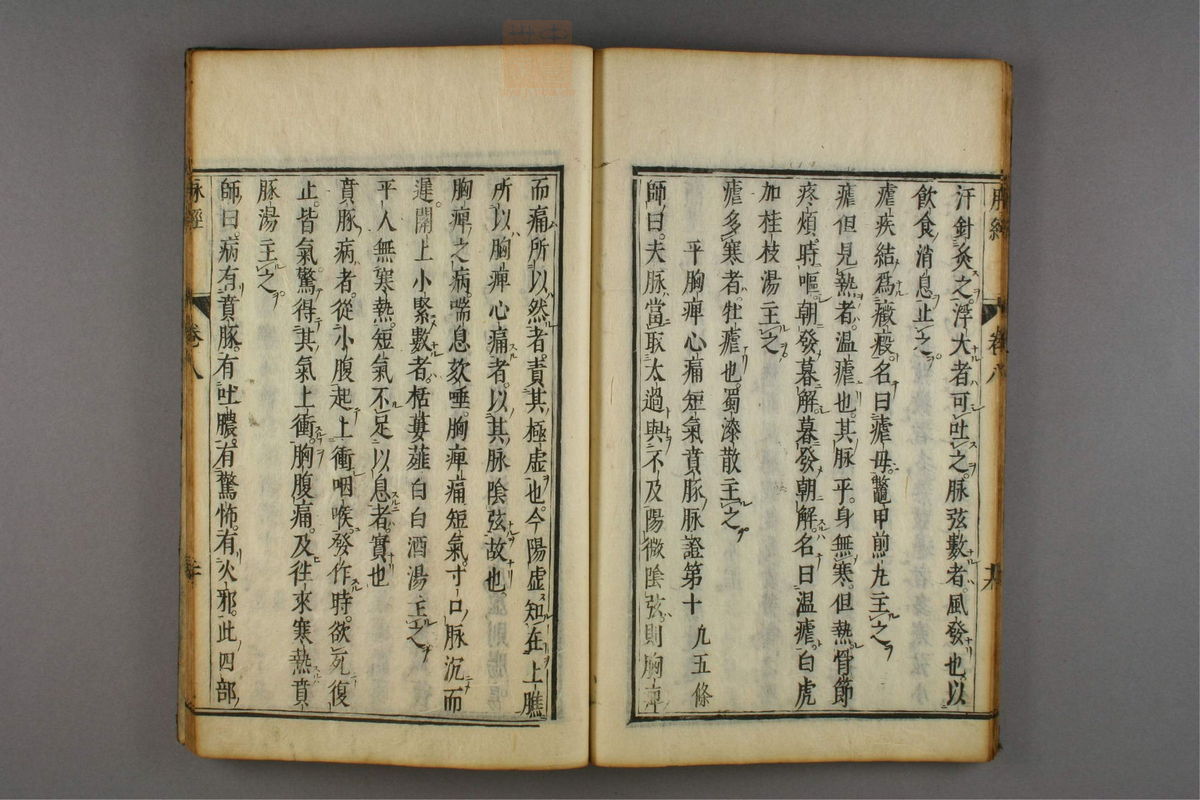 汗針灸之浮大者可吐之。脉弦數者。風發也以
飲食消息止之。
瘧疾結爲癥瘕。名曰瘧母鱉甲煎丸主之
瘧但見熱者。温瘧也。其脉平。身無寒。但熱骨節
疼煩。時嘔。朝發暮解。暮發朝解。名曰温瘧白虎
加桂枝湯主之
瘧多寒者。牡瘧也。蜀漆散主之。
平胸痺心痛短氣賁豚脉證第十 凡五條
師曰。夫脉當取太過與不及陽微陰弦。則胸痺
而痛所以然者。責其極虚也。今陽虚知在上膲
所以胸痺心痛者。以其脉陰弦故也
胸痺之病喘息欬唾。胸痺痛短氣。寸口脉沉而
遲。關上小緊數者。栝蔞薤白白酒湯主之。
平人無寒熱。短氣不足以息者。實也
賁豚病者。從小腹起上衝咽喉。發作時。欲死復
止。皆氣驚得其氣上衝。胸腹痛。及往來寒熱賁
豚湯主之。
師曰。病有賁豚。有吐膿。有驚怖。有火邪。此四部
脉經
卷八
脉經
卷八